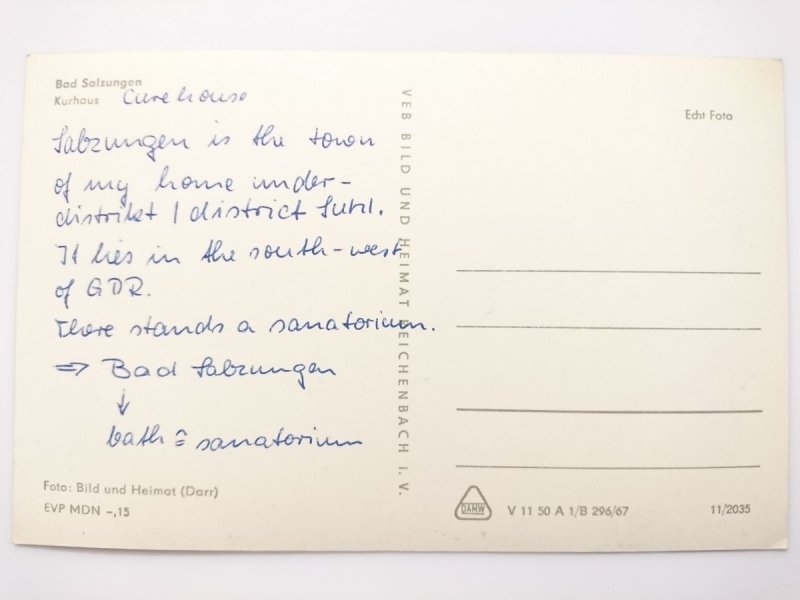 Bad Salzungen
Kurhaus Curehouse
Salzungen is the town
of my home under-
distrikt / district Suhl.
It lies in the south-west
of GDR.
There stands a sanatorium.
⇒ Bad Salzungen
↓
bath ≙ sanatorium
Foto: Bild und Heimat (Darr)
EVP MDN –,15
VEB BILD UND HEIMAT REICHENBACH i. V.
Echt Foto
DAMW
V 11 50 A 1/B 296/67
11/2035